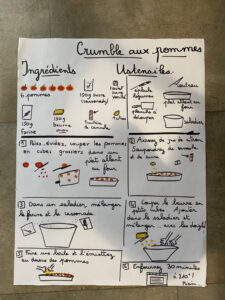 Crumble aux pommes
Ingrédients
Ustensiles
6 pommes
150g sucre
(cassonade)
1 sachet
sucre
vanillé
150g
farine
150g
beurre
cannelle
épluche
légumes
couteau
planche à
découper
plat allant au
four
saladier
1 Pelez, évidez, coupez les pommes
en cubes grossiers dans un
plat allant
au four
2 Arrosez de jus de citron
Saupoudrez de cannelle
et de sucre
3 Dans un saladier, mélanger
la farine et la cassonade
4 Coupez le beurre en
petits cubes. Ajouter
dans le saladier et
mélanger avec les doigts
5 Faire une boule et l'émiettez
au dessus des pommes
6 Enfournez 30 minutes
à 210°!